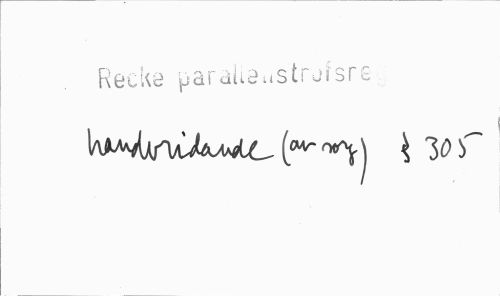 Recke parallellstrofsreg
handvridande (av sorg) § 305